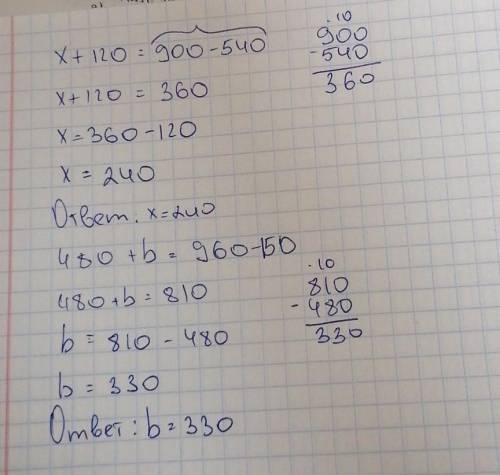 x + 120 = 900 - 540
x + 120 = 360
x = 360 - 120
x = 240
Ответ. x = 240
480 + b = 960 - 150
480 + b = 810
b = 810 - 480
b = 330
Ответ: b = 330
.10
900
- 540
360
.10
810
- 480
330